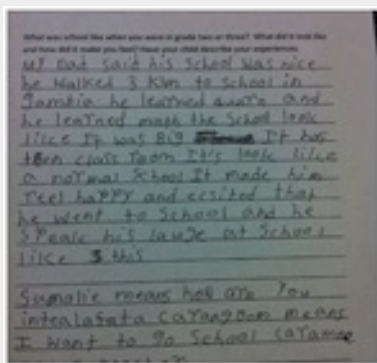 What was school like when you were in grade two or three? What did it look like
and how did it make you feel? Have your child describe your experiences.
My Dad said his school was nice
he walked 3 klm to school in
Gambia he learned and
he learned math the School look
like It was Big It has
ten class room It's look like
a normal School It made him
feel happy and ecsited that
he went to School and he
Speak his lauge at School
like this
means how are you
means
I want to go School